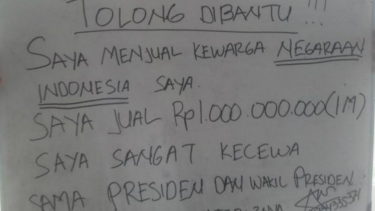 TOLONG DIBANTU !!!
SAYA MENJUAL KEWARGA NEGARAAN
INDONESIA SAYA.
SAYA JUAL Rp1.000.000.000(1M)
SAYA SANGAT KECEWA
SAMA PRESIDEN DAN WAKIL PRESIDEN